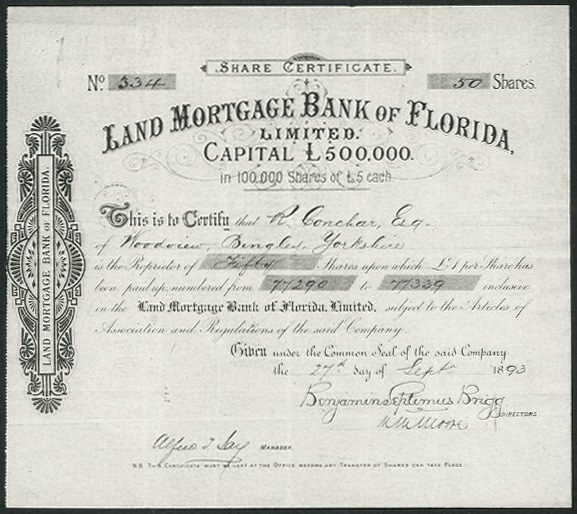 SHARE CERTIFICATE.
No. 334
50 Shares.
LAND MORTGAGE BANK OF FLORIDA,
LIMITED.
CAPITAL £500,000.
in 100,000 Shares of £5 each
This is to Certify that R. Conchar, Esq.
of Woodview, Bingley, Yorkshire
is the Proprietor of Fifty Shares upon which £1 per Share has
been paid up, numbered from 77290 to 77339 inclusive
in the Land Mortgage Bank of Florida, Limited, subject to the Articles of
Association and Regulations of the said Company.
Given under the Common Seal of the said Company
the 27th day of Sept 1893
Benjamin Septimus Brigg
DIRECTORS.
Moore
Alfred MANAGER
N.B. THIS CERTIFICATE MUST BE LEFT AT THE OFFICE BEFORE ANY TRANSFER OF SHARES CAN TAKE PLACE.
LAND MORTGAGE BANK OF FLORIDA.